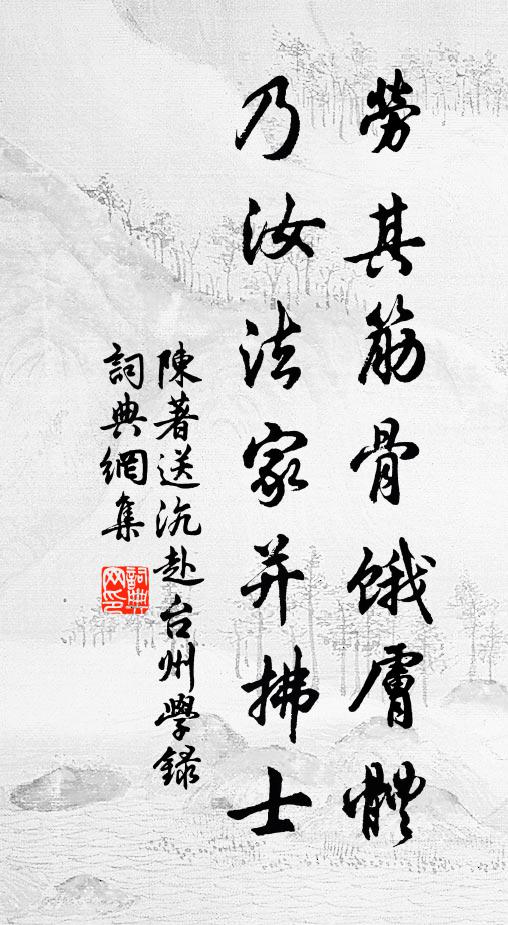 勞其筋骨餓膚體
乃汝法家并拂士
陳著送沆赴台州學錄
詞典網集
詞典網印